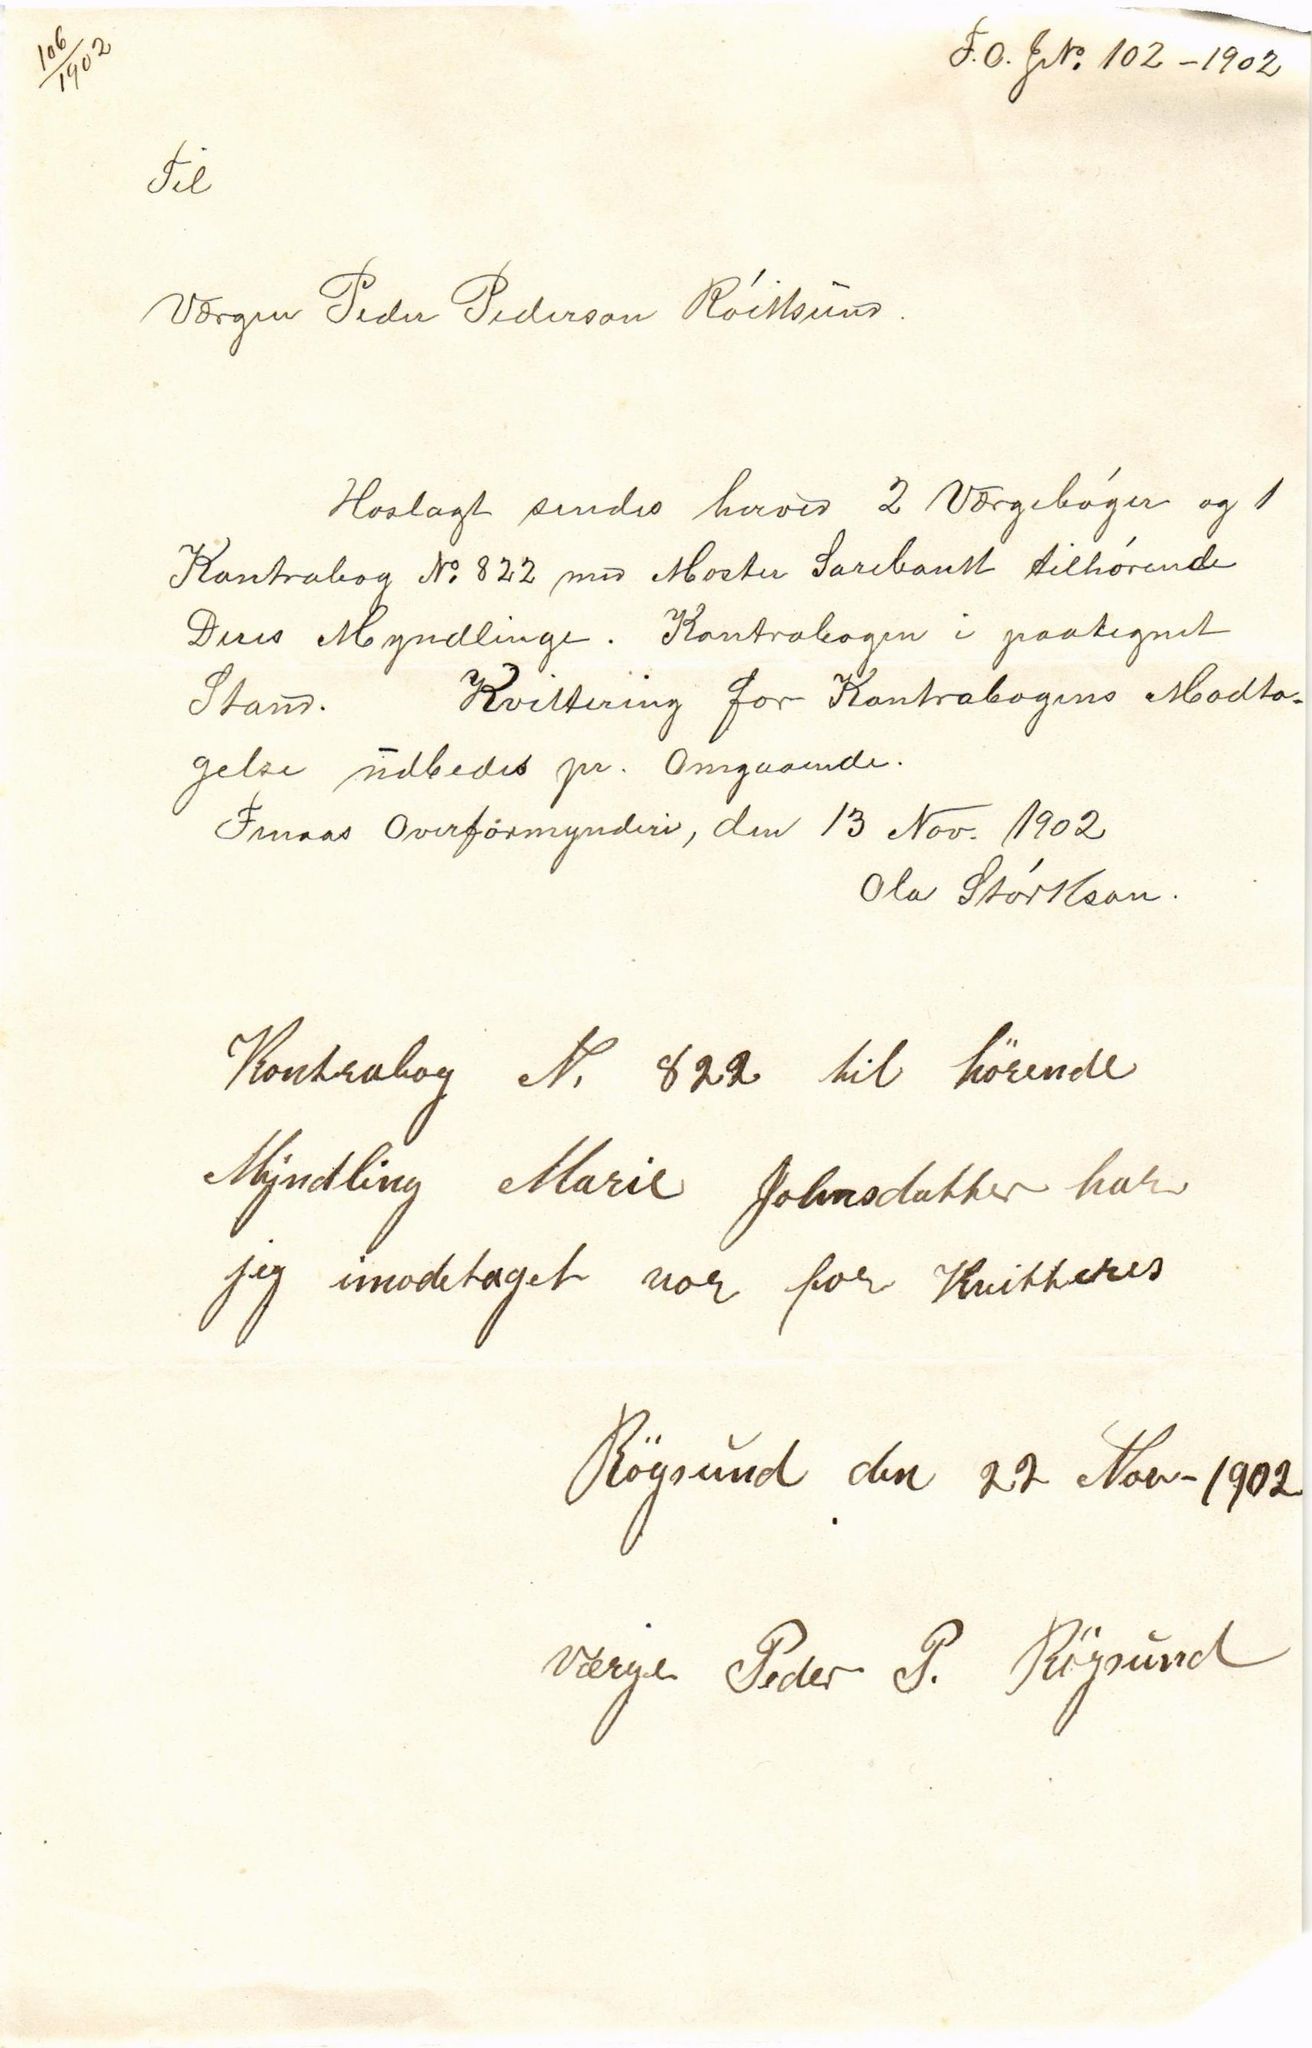 106/1902
F.O. J.No. 102 - 1902
Til
Værgen Peder Pederson Róitksund.
Hoslagt sendes herved 2 Værgebóger og 1
Kontrabog No. 822 med Moster Sarebank tilhórende
Deres Myndlinge. Kontrabogen i paategnet
Stand. Kvittering for Kontrabogens Modta-
gelse udbedes pr. Omgaaende.
Finaas Overformynderi, den 13 Nov. 1902
Ola Stórkson.
Kontrabog N. 822 til hörende
Myndling Marie Johnsdatter har
jeg imodetaget vor for Kvitteres
Rögsund den 22 Nov - 1902
Værge Peder P. Rögsund